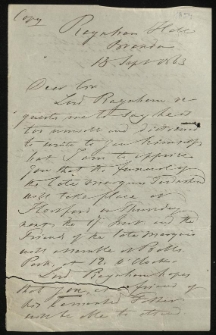 Copy
Raynham Hall
Brandon
18 Sept 1863
Dear Sir
Lord Raynham re-
quests me to say he is
too unwell and distressed
to write to you himself
that I am to apprise
you that the funeral of
the late Marquis Townshend
will take place on
next, the
friends of the late Marquis
will assemble at Balls
Park, at 12 o'Clock.
Lord Raynham hopes
that you, as a friend of
his lamented Father
will be able to attend